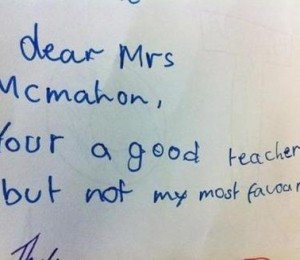 dear Mrs
Mcmahon,
Your a good teacher
but not my most favour